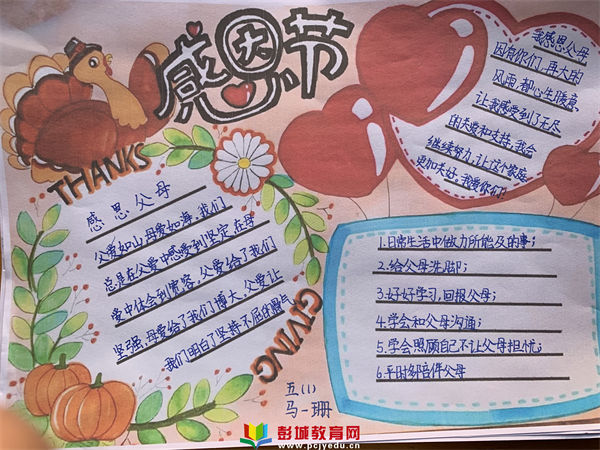 感恩节
THANKS
GIVING
感恩父母
父爱如山,母爱如海,我们
总是在父爱中感受到坚定,在母
爱中体会到宽容,父爱给了我们
坚强,母爱给了我们博大,父爱让
我们明白了坚持不屈的脾气
我感恩父母
因有你们,再大的
风雨,都心生暖意,
让我感受到了无尽
的关爱和支持,我会
继续努力,让这个家庭
更加美好,我爱你们!
1.日常生活中做力所能及的事;
2.给父母洗脚;
3.好好学习,回报父母;
4.学会和父母沟通;
5.学会照顾自己不让父母担忧;
6.平时多陪伴父母
五(1)
马一珊
彭城教育网
www.pcjyedu.cn